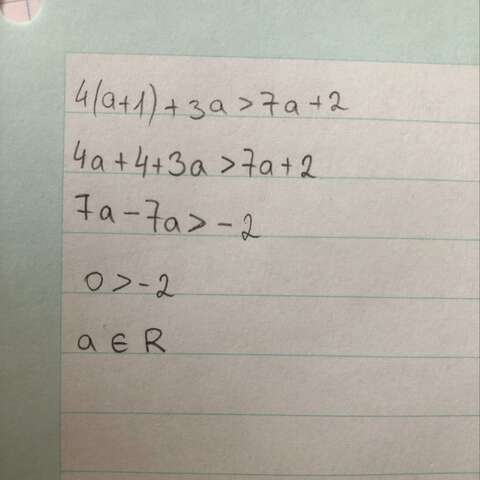 4(a+1)+3a>7a+2
4a+4+3a>7a+2
7a-7a>-2
0>-2
a ∈ R